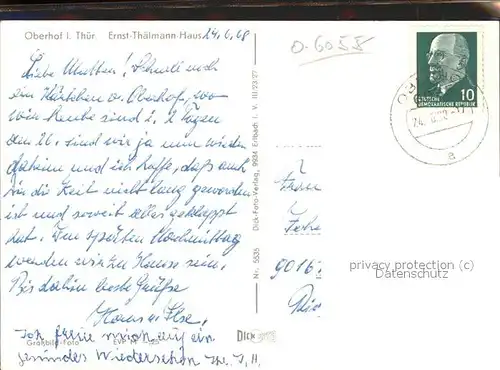 Oberhof i. Thür. Ernst-Thälmann-Haus 24.6.68
0-6055
Liebe Mutter! Schnell noch
ein Kärtchen v. Oberhof, wo
wir heute sind i. 2 Tagen
den 26. sind wir ja nun wieder
daheim und ich hoffe, daß auch
die Zeit nicht lang geworden
ist und soweit alles geklappt
hat. Am späten Nachmittag
werden wir zu Hause sein.
Bis dahin beste Grüße
Hans u. Ilse,
Ich freue mich auf ein
gesundes Wiedersehen
Großbild-Foto
DICK
Nr. 5535 Dick-Foto-Verlag, 9934 Erlbach i. V. III 23 27
10
DEUTSCHE
DEMOKRATISCHE REPUBLIK
a
Frau
9016
privacy protection (c)
Datenschutz